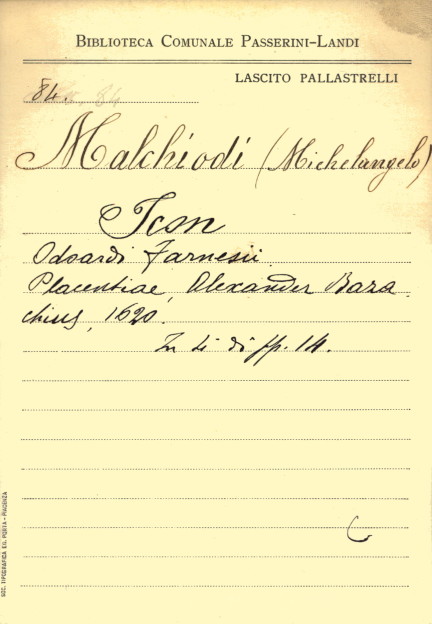 BIBLIOTECA COMUNALE PASSERINI-LANDI
LASCITO PALLASTRELLI
84.
Malchiodi (Michelangelo)
Icon
Odoardi Farnesii.
Placentiae, Alexander Baza
chius, 1620.
In 4 di pp. 14.
SOC. TIPOGRAFICA ED. PORTA - PIACENZA